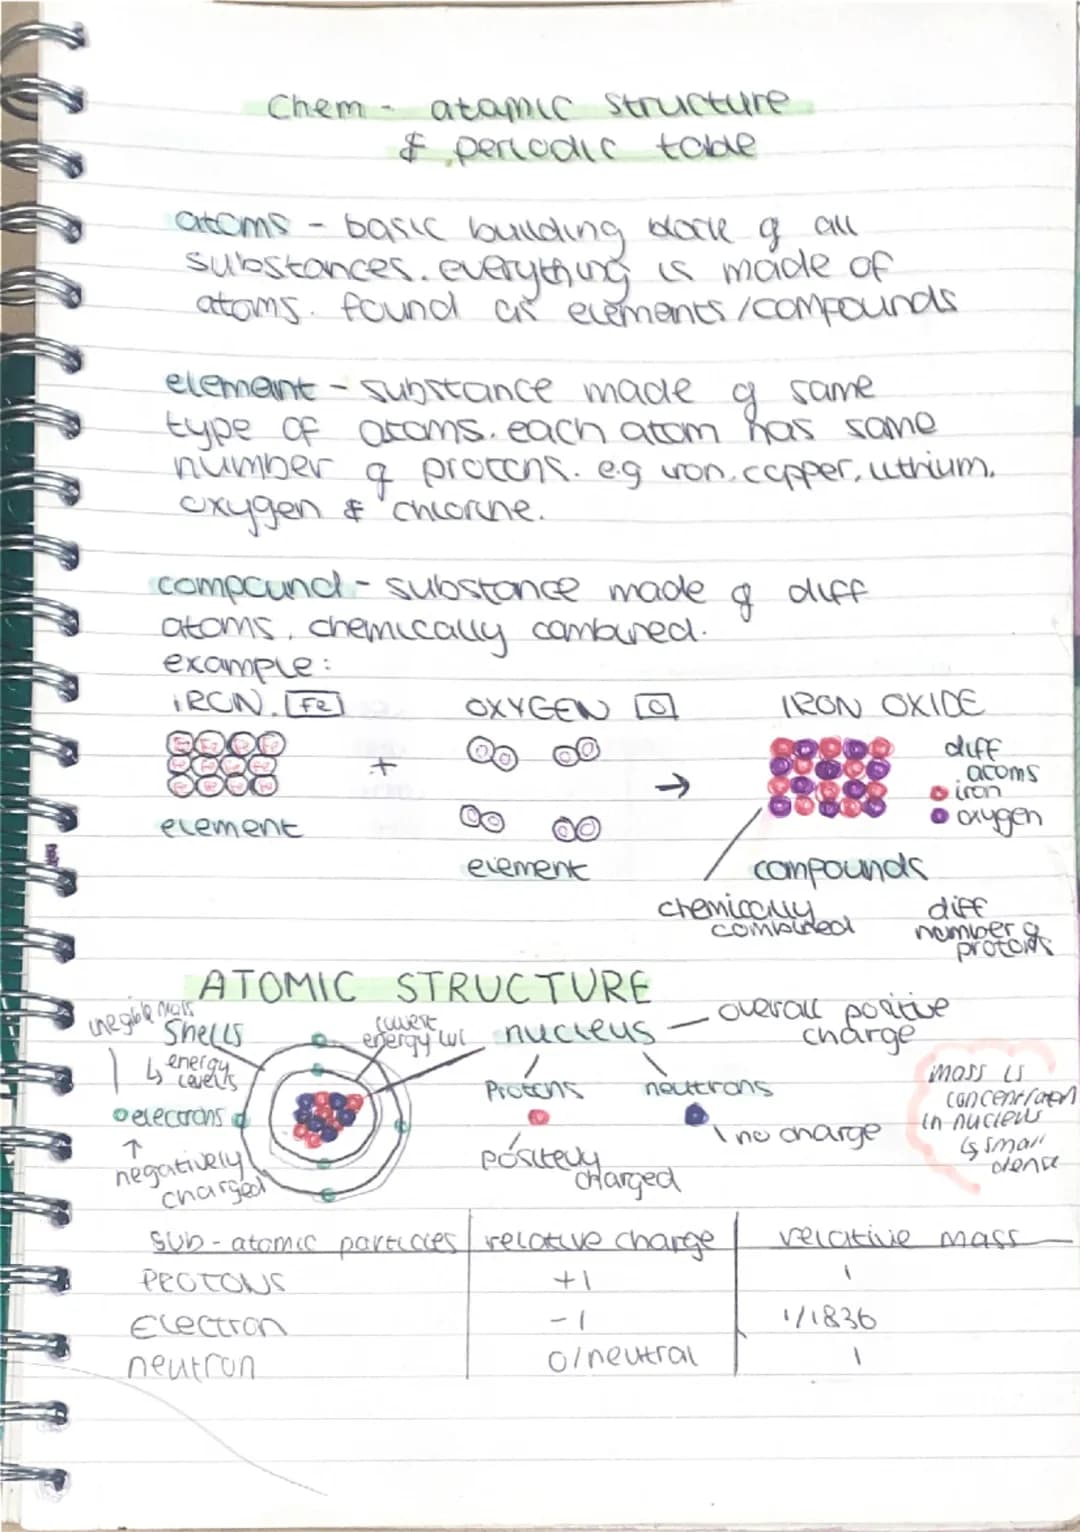 Chem - atomic structure
& periodic table
atoms - basic building block of all
substances. everything is made of
atoms. found as elements/compounds
element - substance made of same
type of atoms. each atom has same
number of protons. e.g iron, copper, lithium,
oxygen & chlorine.
compound - substance made of diff
atoms, chemically combined.
example:
IRON. Fe OXYGEN O IRON OXIDE
Fe Fe Fe Fe
+ →
diff
atoms
iron
oxygen
element
element
compounds
chemically
combined
diff
number of
protons
ATOMIC STRUCTURE
negible mass
shells
↳ energy
levels
lowest
energy lvl
nucleus — overall positive
charge
protons neutrons
electrons
↑
negatively
charged
positevly
charged
no charge
mass is
concentrated
in nucleus
↳ small
dense
sub-atomic particles relative charge relative mass
PROTONS +1 1
Electron -1 1/1836
neutron 0/neutral 1